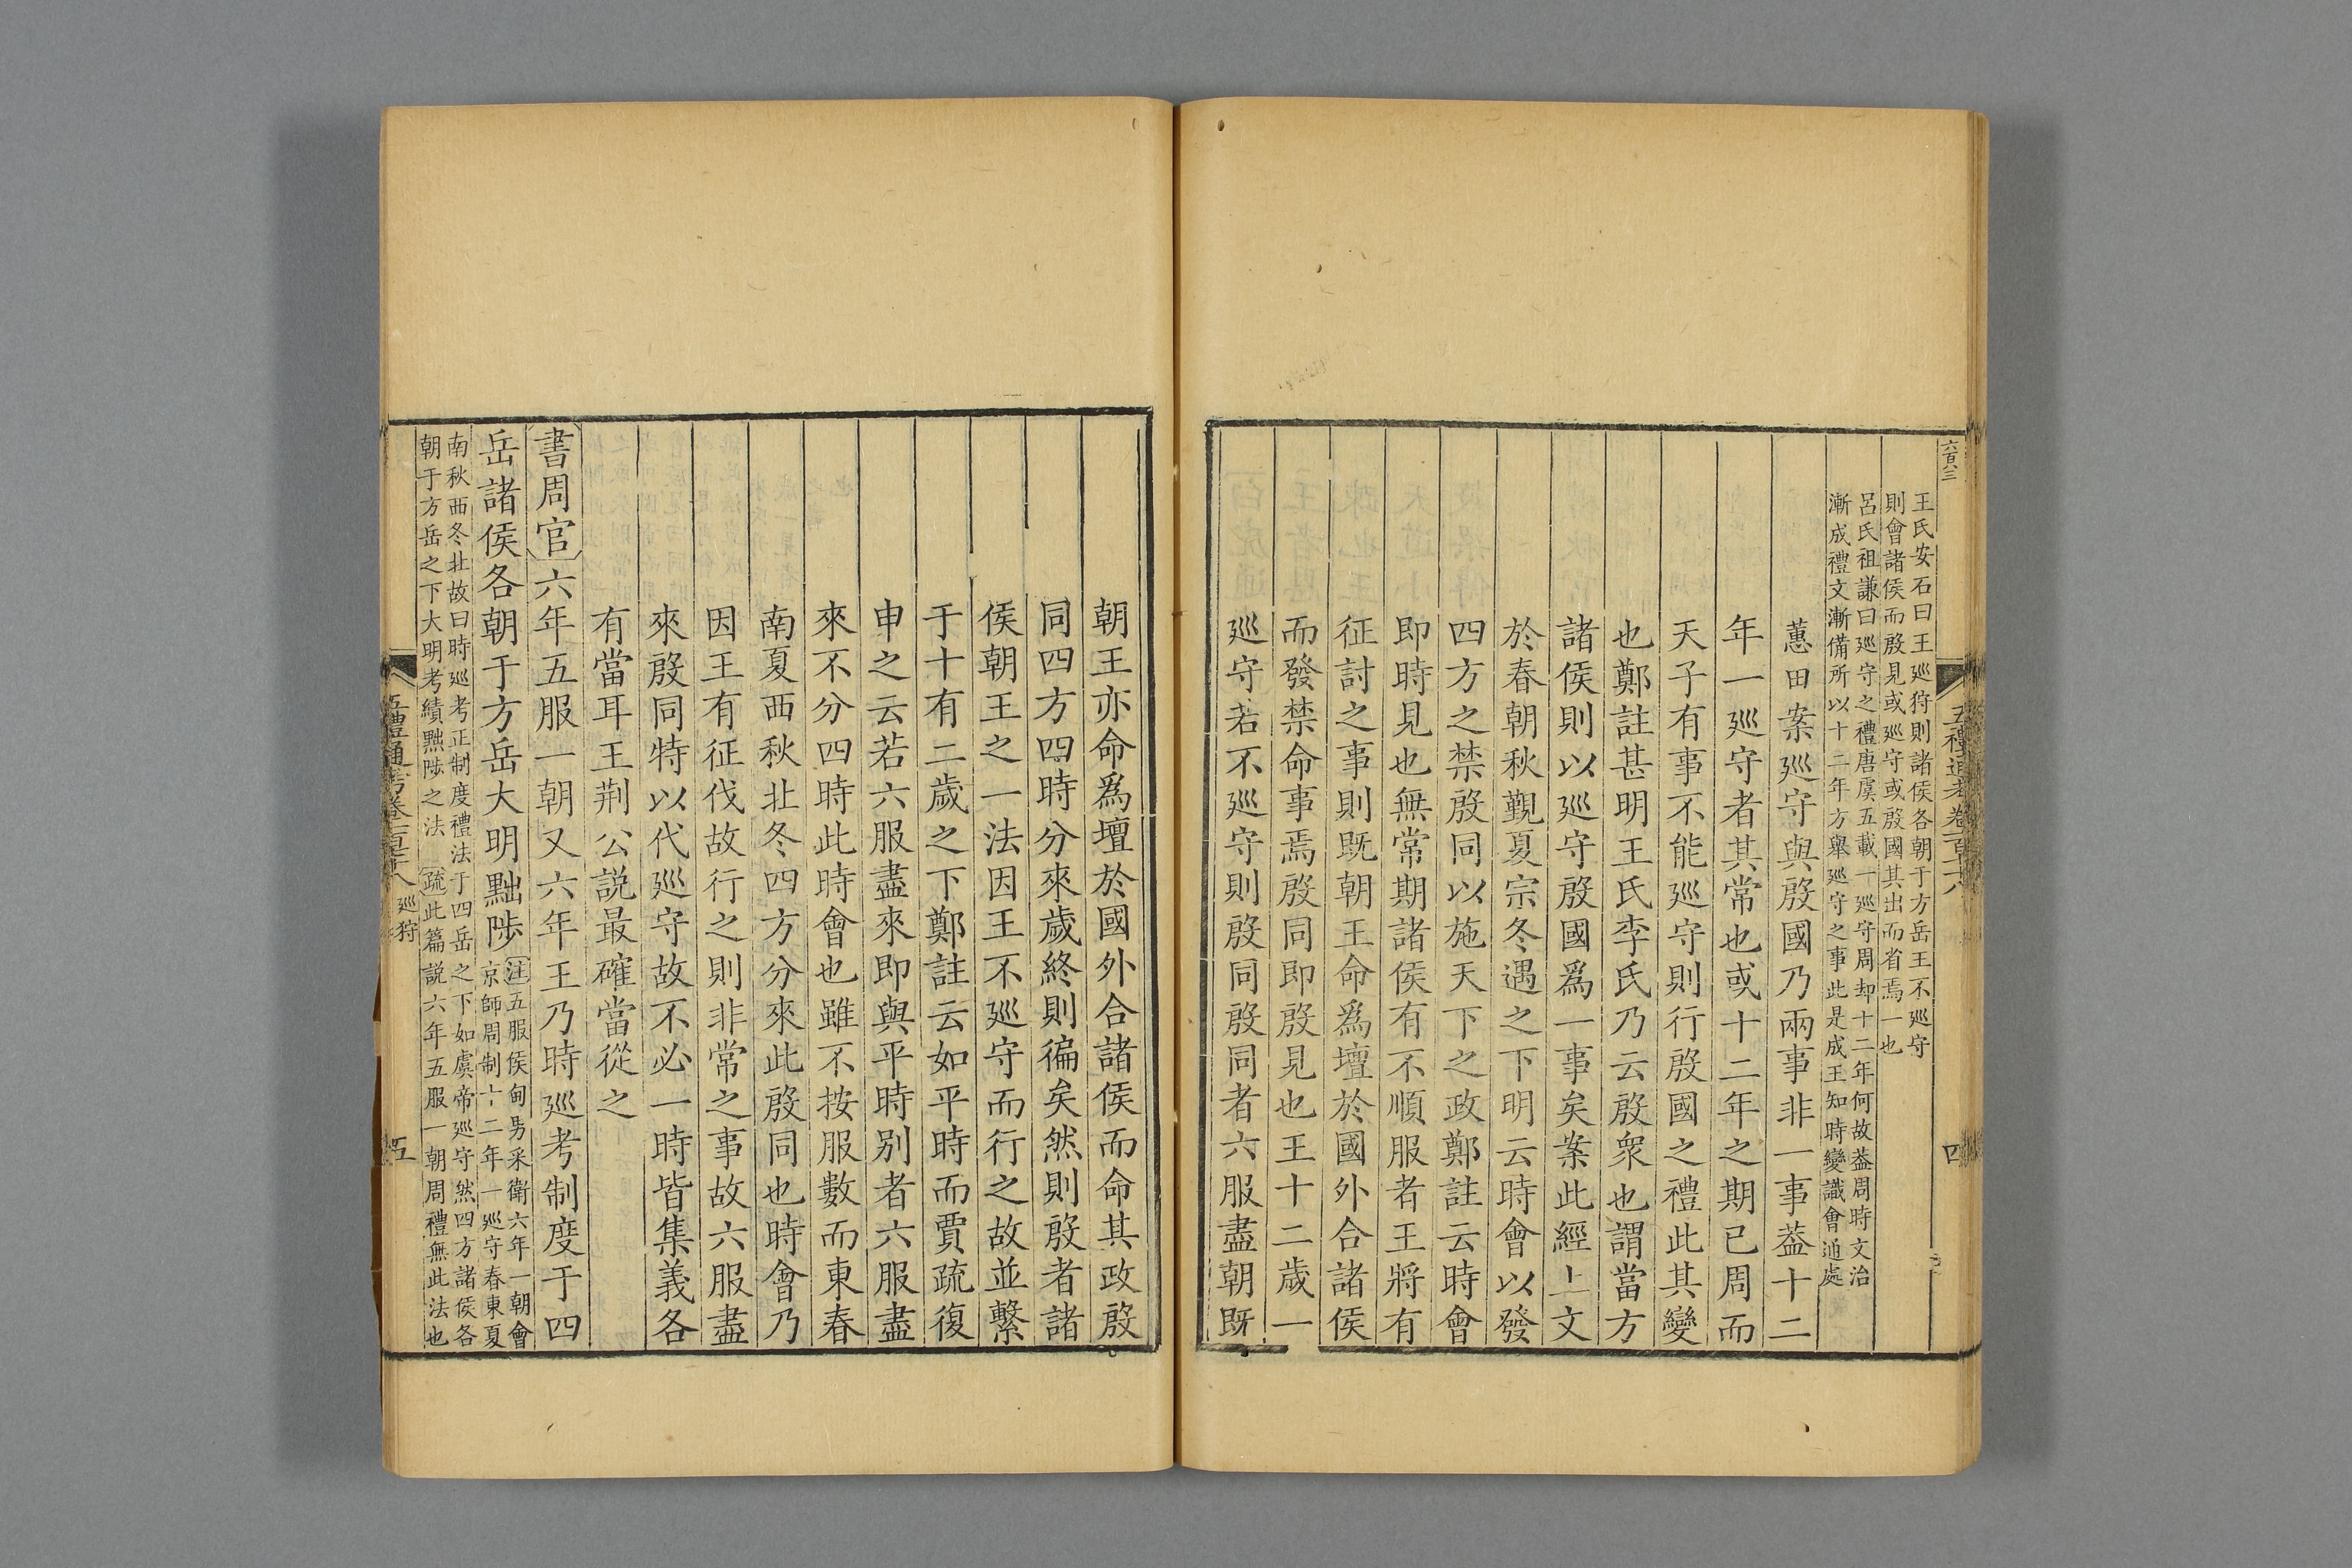 六百八三
五禮通考卷一百七十八
四
王氏安石曰王廵狩則諸侯各朝于方岳王不廵守
則會諸侯而殷見或廵守或殷國其出而省焉一也
呂氏祖謙曰廵守之禮唐虞五載一廵守周却十二年何故葢周時文治
漸成禮文漸備所以十二年方舉廵守之事此是成王知時變識會通處
蕙田案廵守與殷國乃兩事非一事葢十二
年一廵守者其常也或十二年之期已周而
天子有事不能廵守則行殷國之禮此其變
也鄭註甚明王氏李氏乃云殷衆也謂當方
諸侯則以廵守殷國爲一事矣案此經上文
於春朝秋覲夏宗冬遇之下明云時會以發
四方之禁殷同以施天下之政鄭註云時會
即時見也無常期諸侯有不順服者王將有
征討之事則既朝王命爲壇於國外合諸侯
而發禁命事焉殷同即殷見也王十二歲一
廵守若不廵守則殷同殷同者六服盡朝既
朝王亦命爲壇於國外合諸侯而命其政殷
同四方四時分來歲終則徧矣然則殷者諸
侯朝王之一法因王不廵守而行之故並繫
于十有二歲之下鄭註云如平時而賈疏復
申之云若六服盡來即與平時别者六服盡
來不分四時此時會也雖不按服數而東春
南夏西秋北冬四方分來此殷同也時會乃
因王有征伐故行之則非常之事故六服盡
來殷同特以代廵守故不必一時皆集義各
有當耳王荆公説最確當從之
書周官六年五服一朝又六年王乃時廵考制度于四
岳諸侯各朝于方岳大明黜陟
注五服侯甸男采衛六年一朝會
京師周制十二年一廵守春東夏
南秋西冬北故曰時廵考正制度禮法于四岳之下如虞帝廵守然四方諸侯各
朝于方岳之下大明考績黜陟之法 疏此篇説六年五服一朝周禮無此法也
五禮通考卷一百七十八 廵狩
五